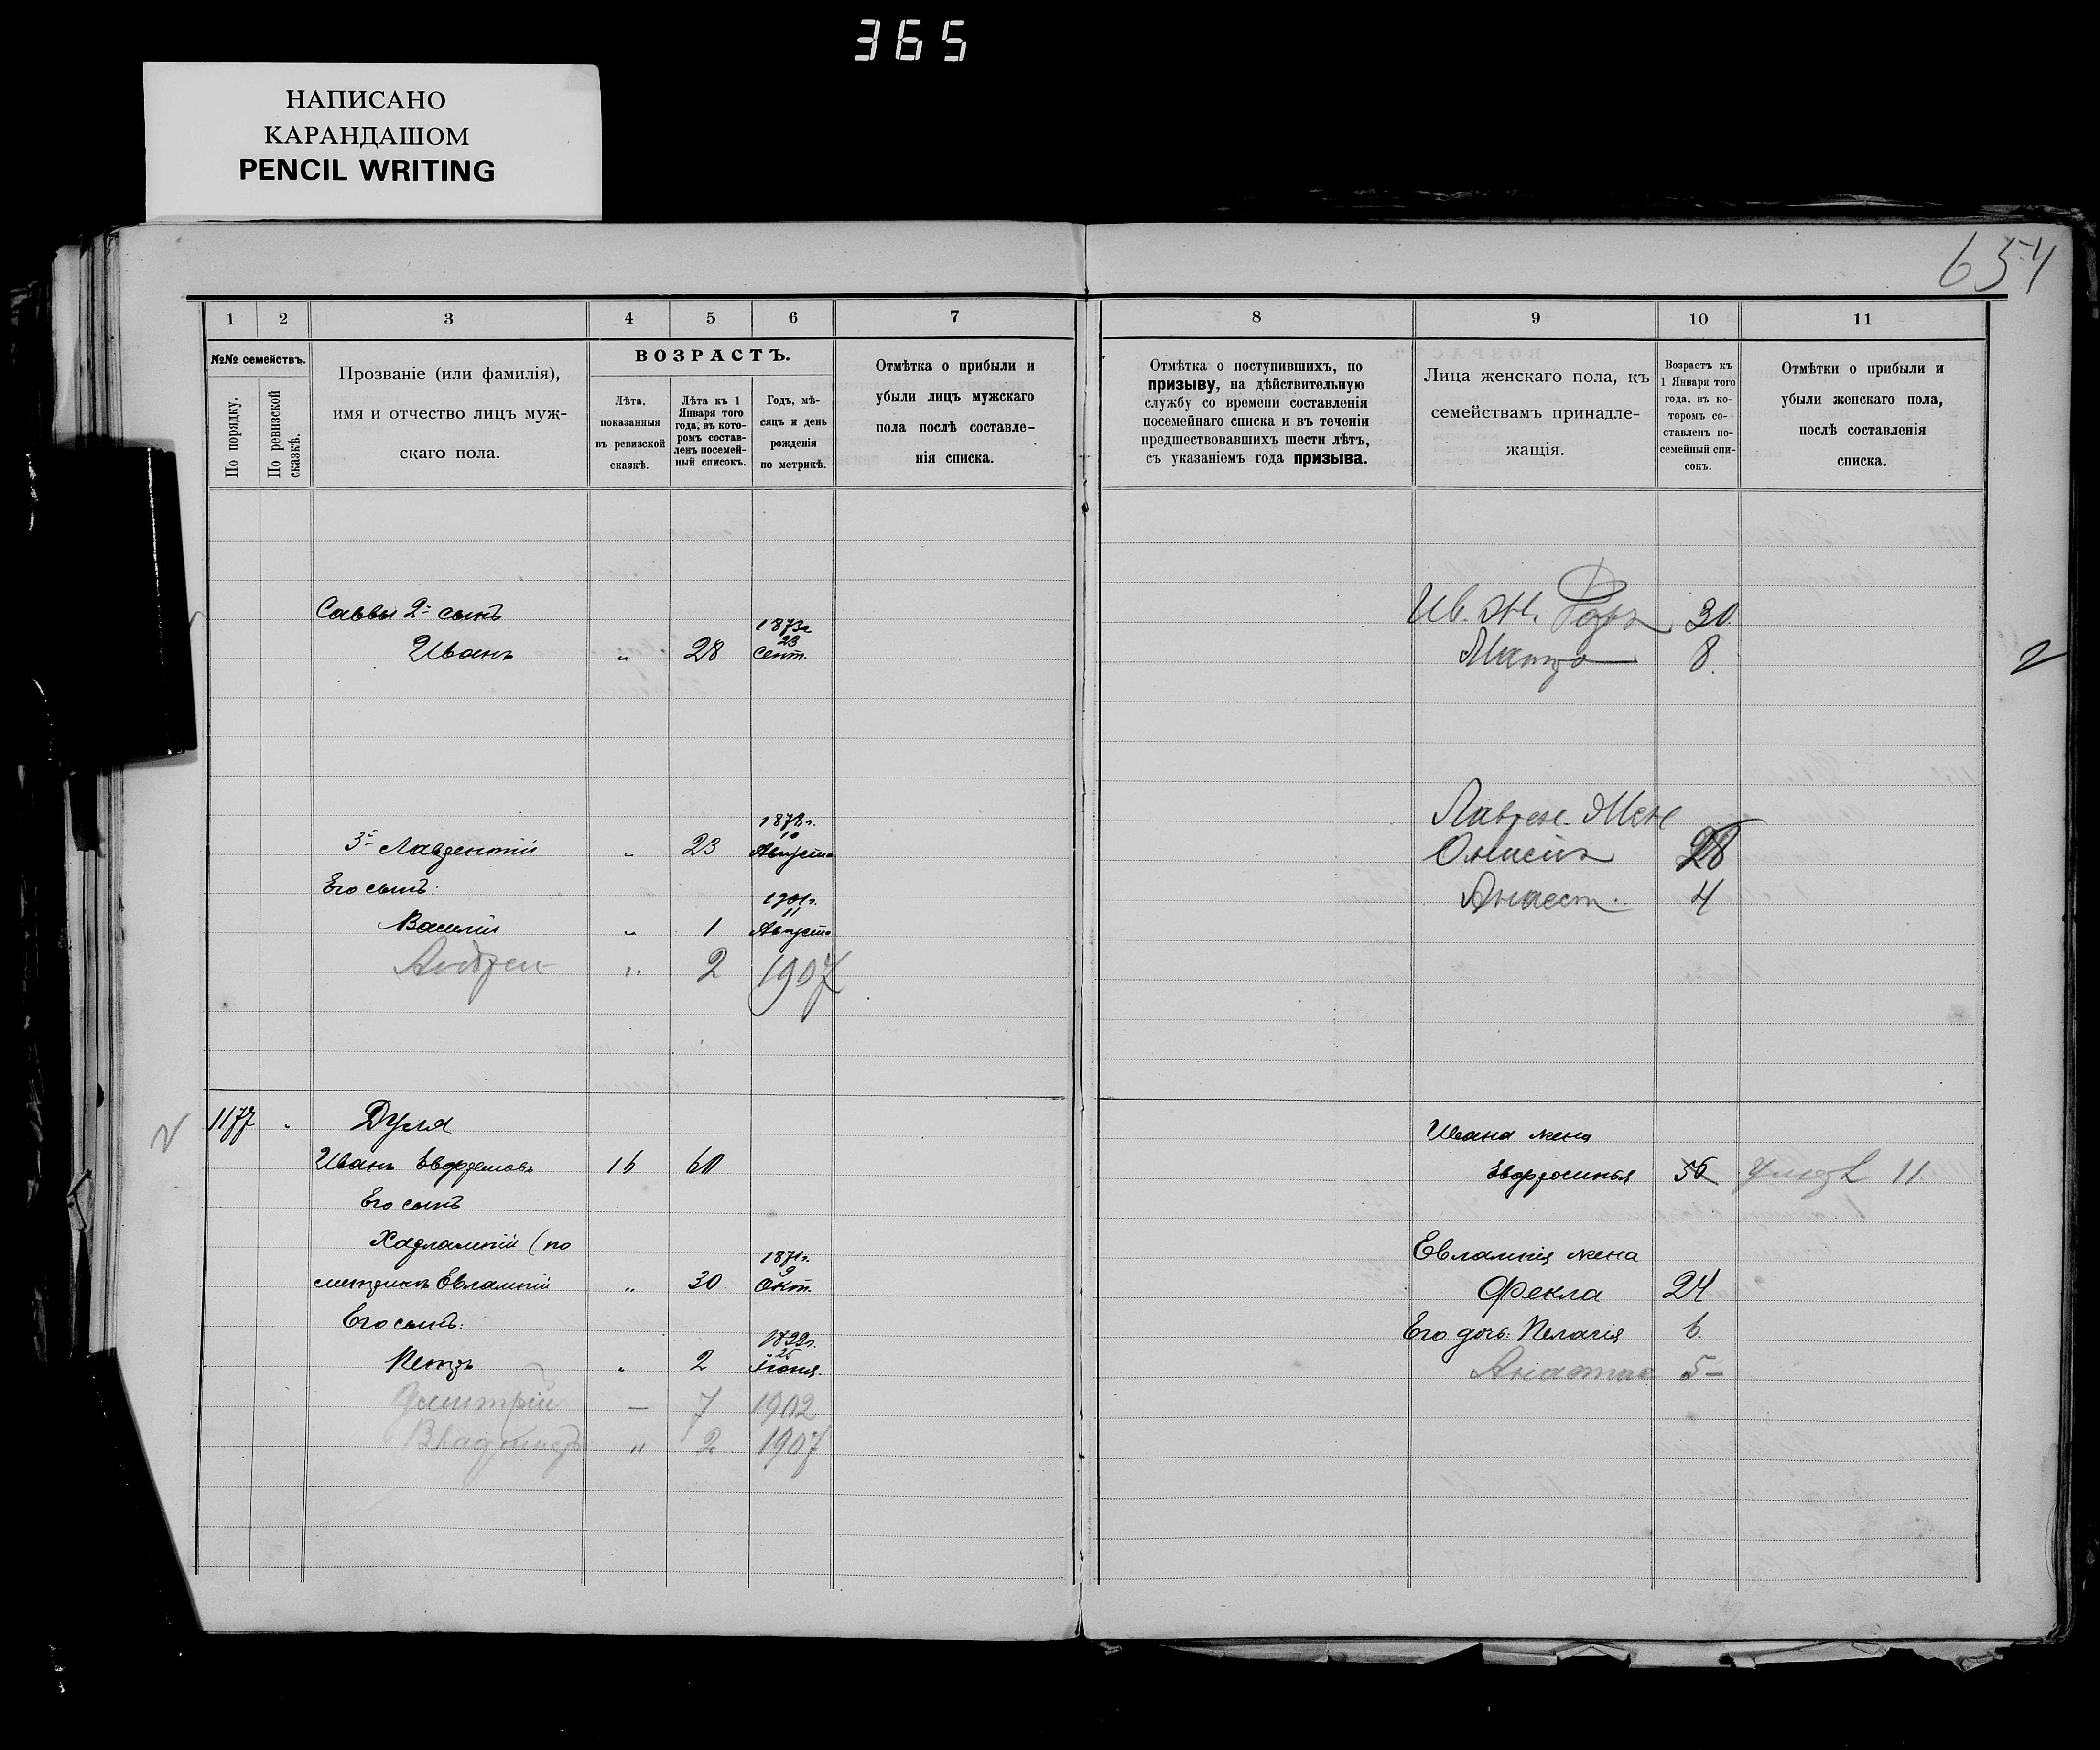 365
НАПИСАНО
КАРАНДАШОМ
PENCIL WRITING
654
1 2 3 4 5 6 7 8 9 10 11
№№ семействъ.
По порядку.
По ревизской сказкѣ.
Прозваніе (или фамилія),
имя и отчество лицъ муж-
скаго пола.
ВОЗРАСТЪ.
Лѣта,
показанныя
въ ревизской
сказкѣ.
Лѣта къ 1
Января того
года, въ кото-
ромъ состав-
ленъ посемей-
ный списокъ.
Годъ, мѣ-
сяцъ и день
рожденія
по метрикѣ.
Отмѣтка о прибыли и
убыли лицъ мужскаго
пола послѣ составле-
нія списка.
Отмѣтка о поступившихъ, по
призыву, на дѣйствительную
службу со времени составленія
посемейнаго списка и въ теченіи
предшествовавшихъ шести лѣтъ,
съ указаніемъ года призыва.
Лица женскаго пола, къ
семействамъ принадле-
жащія.
Возрастъ къ
1 Января того
года, въ ко-
торомъ со-
ставленъ по-
семейный спи-
сокъ.
Отмѣтки о прибыли и
убыли женскаго пола,
послѣ составленія
списка.
Саввы 2й сынъ
1873г.
23
Иванъ " 28 Сент.
Ив. Ж. 30
8.
1878г.
10
3й Лаврентій " 23 Августа
Его сынъ:
1901г.
11
Василій " 1 Августа
Андрей " 2 1907
Лаврен. Жен
28
Анаст. 4
1177 " Дуля
Иванъ Евфремовъ 16 60
Его сынъ
Харлампій (по
1871г.
9
метрикѣ Евлампій " 30. Окт.
Его сынъ:
1899г.
25
Петръ " 2 Іюня.
Дмитрій — 7 1902
Владимиръ " 2 1907
Ивана жена
Евфросинья 56 Умерл 11.
Евлампія жена
Фекла 24
Его дочь: Пелагія 6.
5-